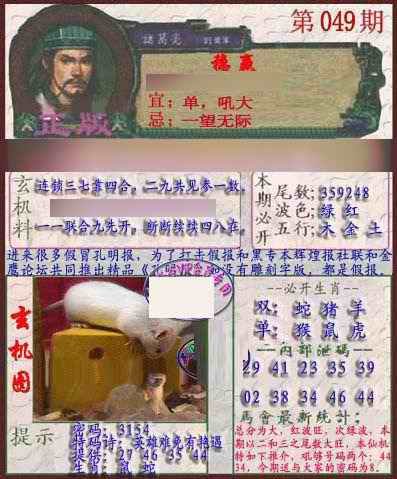 第049期
諸葛亮
稳赢
宜；单，吼大
忌；一望无际
正版
玄机料
连锁三七靠四合，二九共见参一数。
一一联合九先开，断断续续四八在。
本期必开
尾数；359248
波色；绿 红
五行；木 金 土
进来很多假冒孔明报，为了打击假报和黑专本辉煌报社联和金
鹰论坛共同推出精品《孔明报》如没有雕刻字版，都是假报。
玄机图
提示
密码：3154
特码诗：英雄难免有
提供：27 46 35 44
生肖：鼠 蛇
--必开生肖--
双：蛇 猪 羊
单：猴 鼠 虎
--内部泄码--
29 41 23 35 39
02 38 34 46 44
马會最新统计：
总分为大，红波旺，次绿波，本
期以二和三之尾数大旺，本仙机
特如下推介，吼够号码两个：44
34，今期送与大家的密码为8。